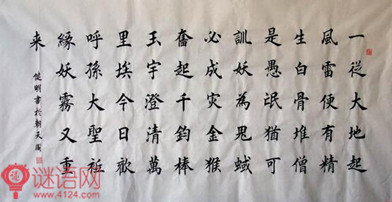 一從大地起
風雷便有精
生白骨堆僧
是愚氓猶可
訓妖為鬼蜮
必成灾金猴
奮起千鈞棒
玉宇澄清萬
里埃今日歡
呼孫大聖祗
緣妖霧又重
来
谜语网
www.4124.com